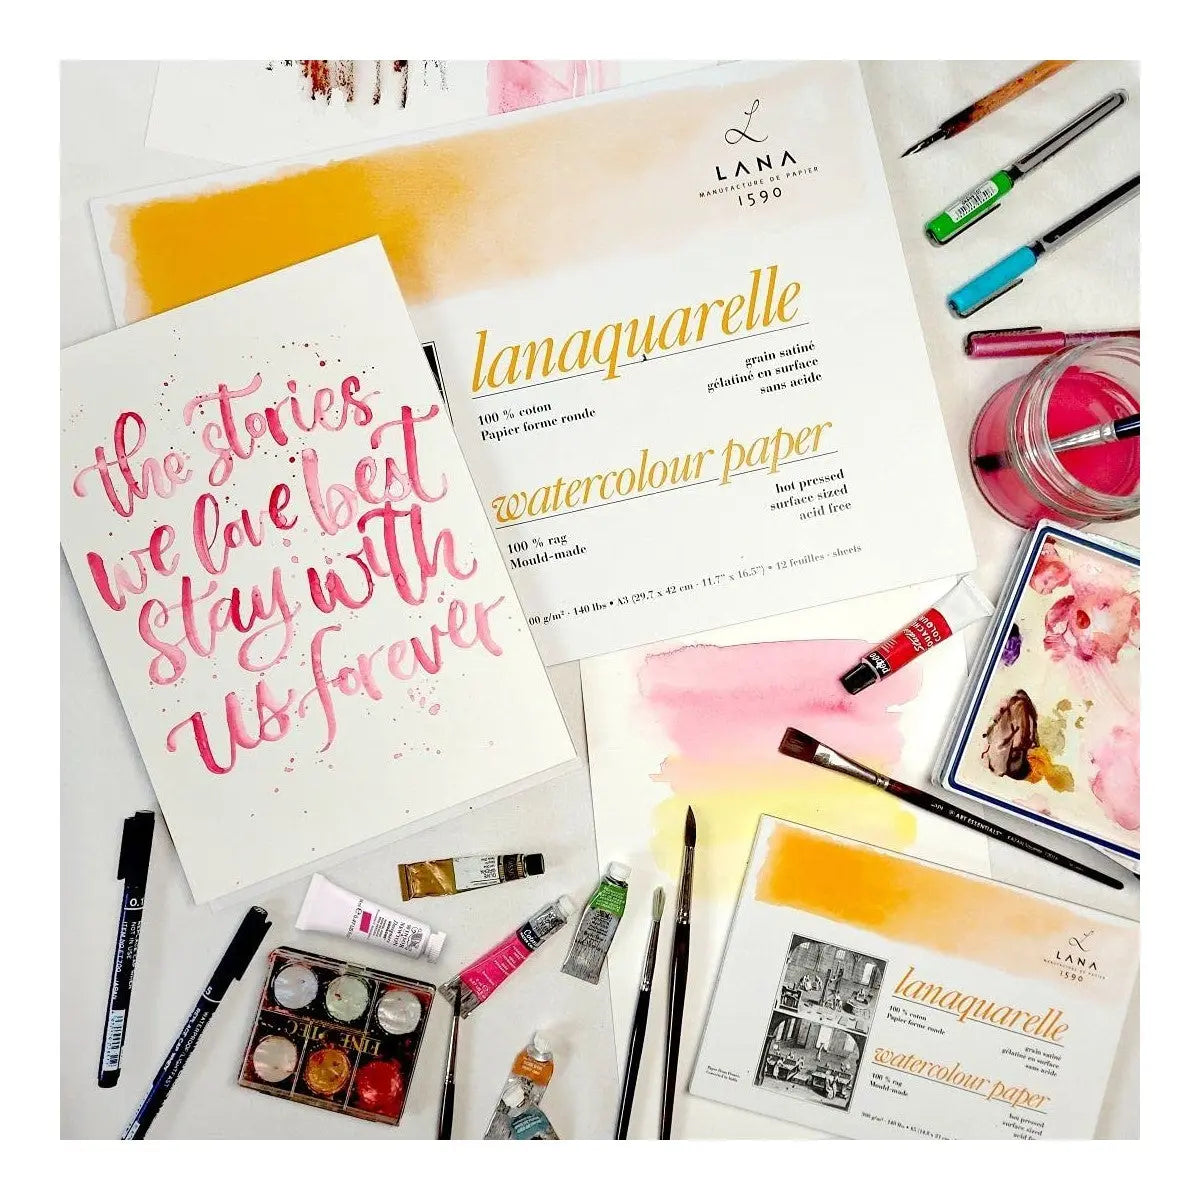 LANA
MANUFACTURE DE PAPIER
1590
lanaquarelle
100 % coton
Papier forme ronde
grain satiné
gélatiné en surface
sans acide
watercolour paper
100 % rag
Mould-made
hot pressed
surface sized
acid free
00 g/m² · 140 lbs • A3 (29.7 x 42 cm · 11.7" x 16.5") • 12 feuilles · sheets
the stories
we love best
stay with
us forever
Studio
pébéo
0.1
JAPAN
ART ESSENTIALS
FINE TEC
LANA
MANUFACTURE DE PAPIER
1590
lanaquarelle
100 % coton
Papier forme ronde
grain satiné
gélatiné en surface
sans acide
watercolour paper
100 % rag
Mould-made
hot pressed
surface sized
acid free
300 g/m² · 140 lbs • A5